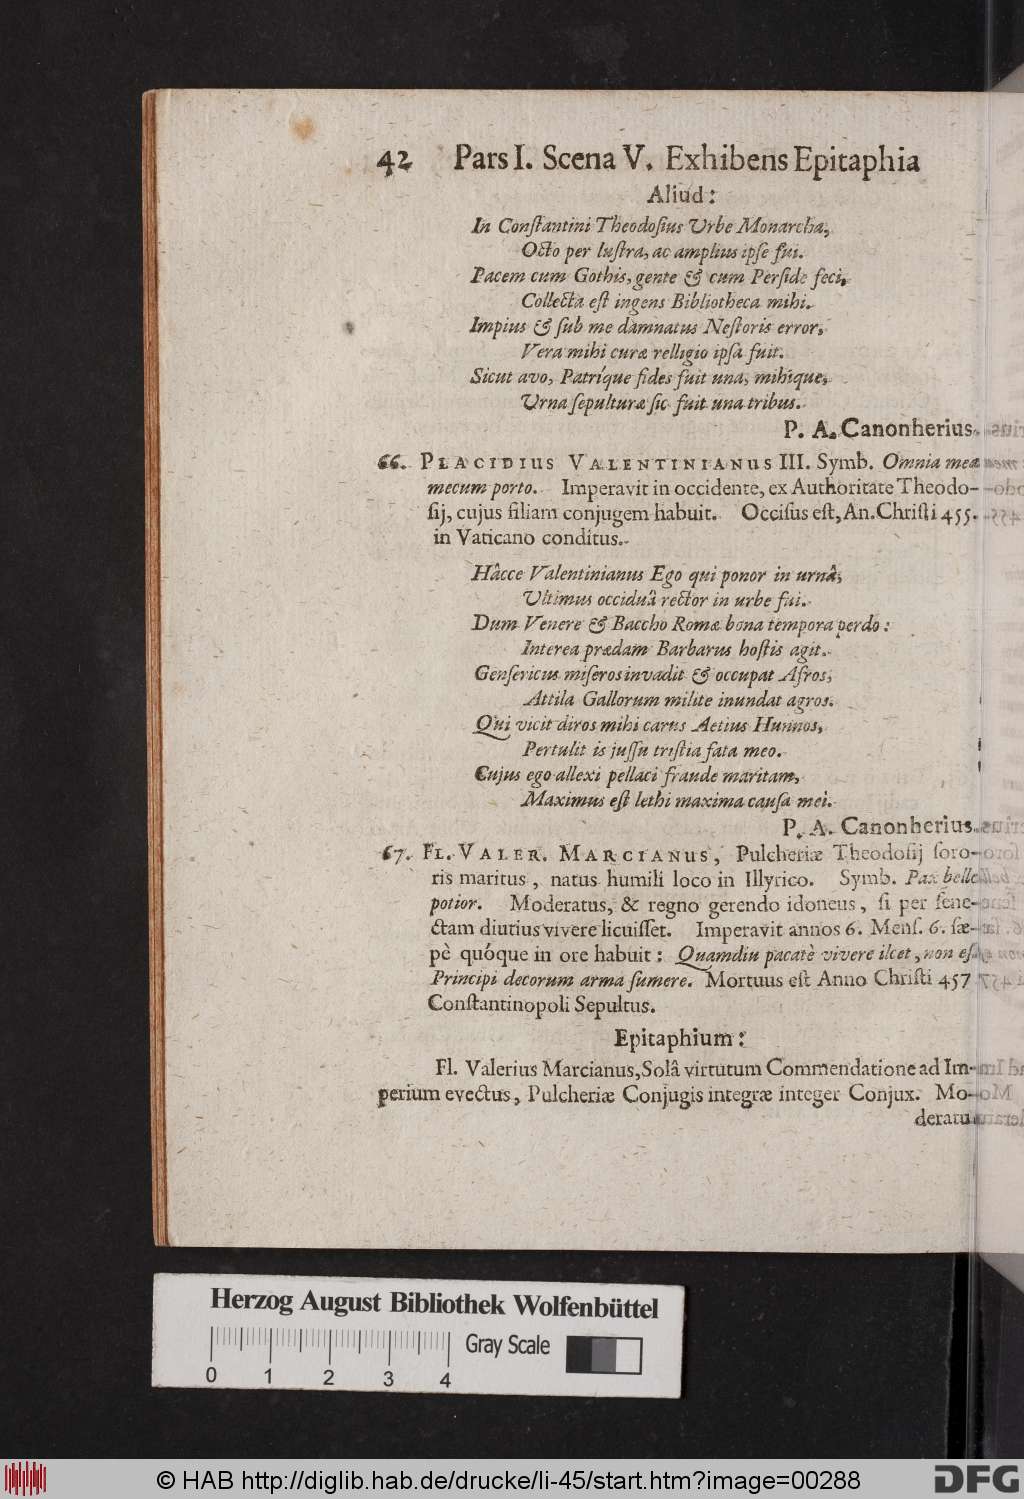 42 Pars I. Scena V. Exhibens Epitaphia
Aliud:
In Conſtantini Theodoſius Urbe Monarcha,
Octo per luſtra, ac amplius ipſe fui.
Pacem cum Gothis, gente & cum Perſide feci,
Collecta eſt ingens Bibliotheca mihi.
Impius & ſub me damnatus Neſtoris error,
Vera mihi curæ relligio ipſa fuit.
Sicut avo, Patríque fides fuit una, mihique,
Urna ſepulturæ ſic fuit una tribus.
P. A. Canonherius.
66. PLACIDIUS VALENTINIANUS III. Symb. Omnia mea
mecum porto. Imperavit in occidente, ex Authoritate Theodo-
ſij, cujus filiam conjugem habuit. Occiſus eſt, An. Chriſti 455.
in Vaticano conditus.
Hâcce Valentinianus Ego qui ponor in urnâ,
Ultimus occiduâ rector in urbe fui.
Dum Venere & Baccho Romæ bona tempora perdo:
Interea prædam Barbarus hoſtis agit.
Genſericus miſeros invadit & occupat Afros,
Attila Gallorum milite inundat agros.
Qui vicit diros mihi carus Aetius Hunnos,
Pertulit is juſſu triſtia fata meo.
Cujus ego allexi pellaci fraude maritam,
Maximus eſt lethi maxima cauſa mei.
P. A. Canonherius.
67. FL. VALER. MARCIANUS, Pulcheriæ Theodoſij ſoro-
ris maritus, natus humili loco in Illyrico. Symb. Pax bello
potior. Moderatus, & regno gerendo idoneus, ſi per ſene-
ctam diutius vivere licuiſſet. Imperavit annos 6. Menſ. 6. ſæ-
pè quóque in ore habuit: Quamdiu pacatè vivere ilcet, non eſſe
Principi decorum arma ſumere. Mortuus eſt Anno Chriſti 457
Conſtantinopoli Sepultus.
Epitaphium:
Fl. Valerius Marcianus, Solâ virtutum Commendatione ad Im-
perium evectus, Pulcheriæ Conjugis integræ integer Conjux. Mo-
deratu
Herzog August Bibliothek Wolfenbüttel
Gray Scale
0 1 2 3 4
© HAB http://diglib.hab.de/drucke/li-45/start.htm?image=00288
DFG